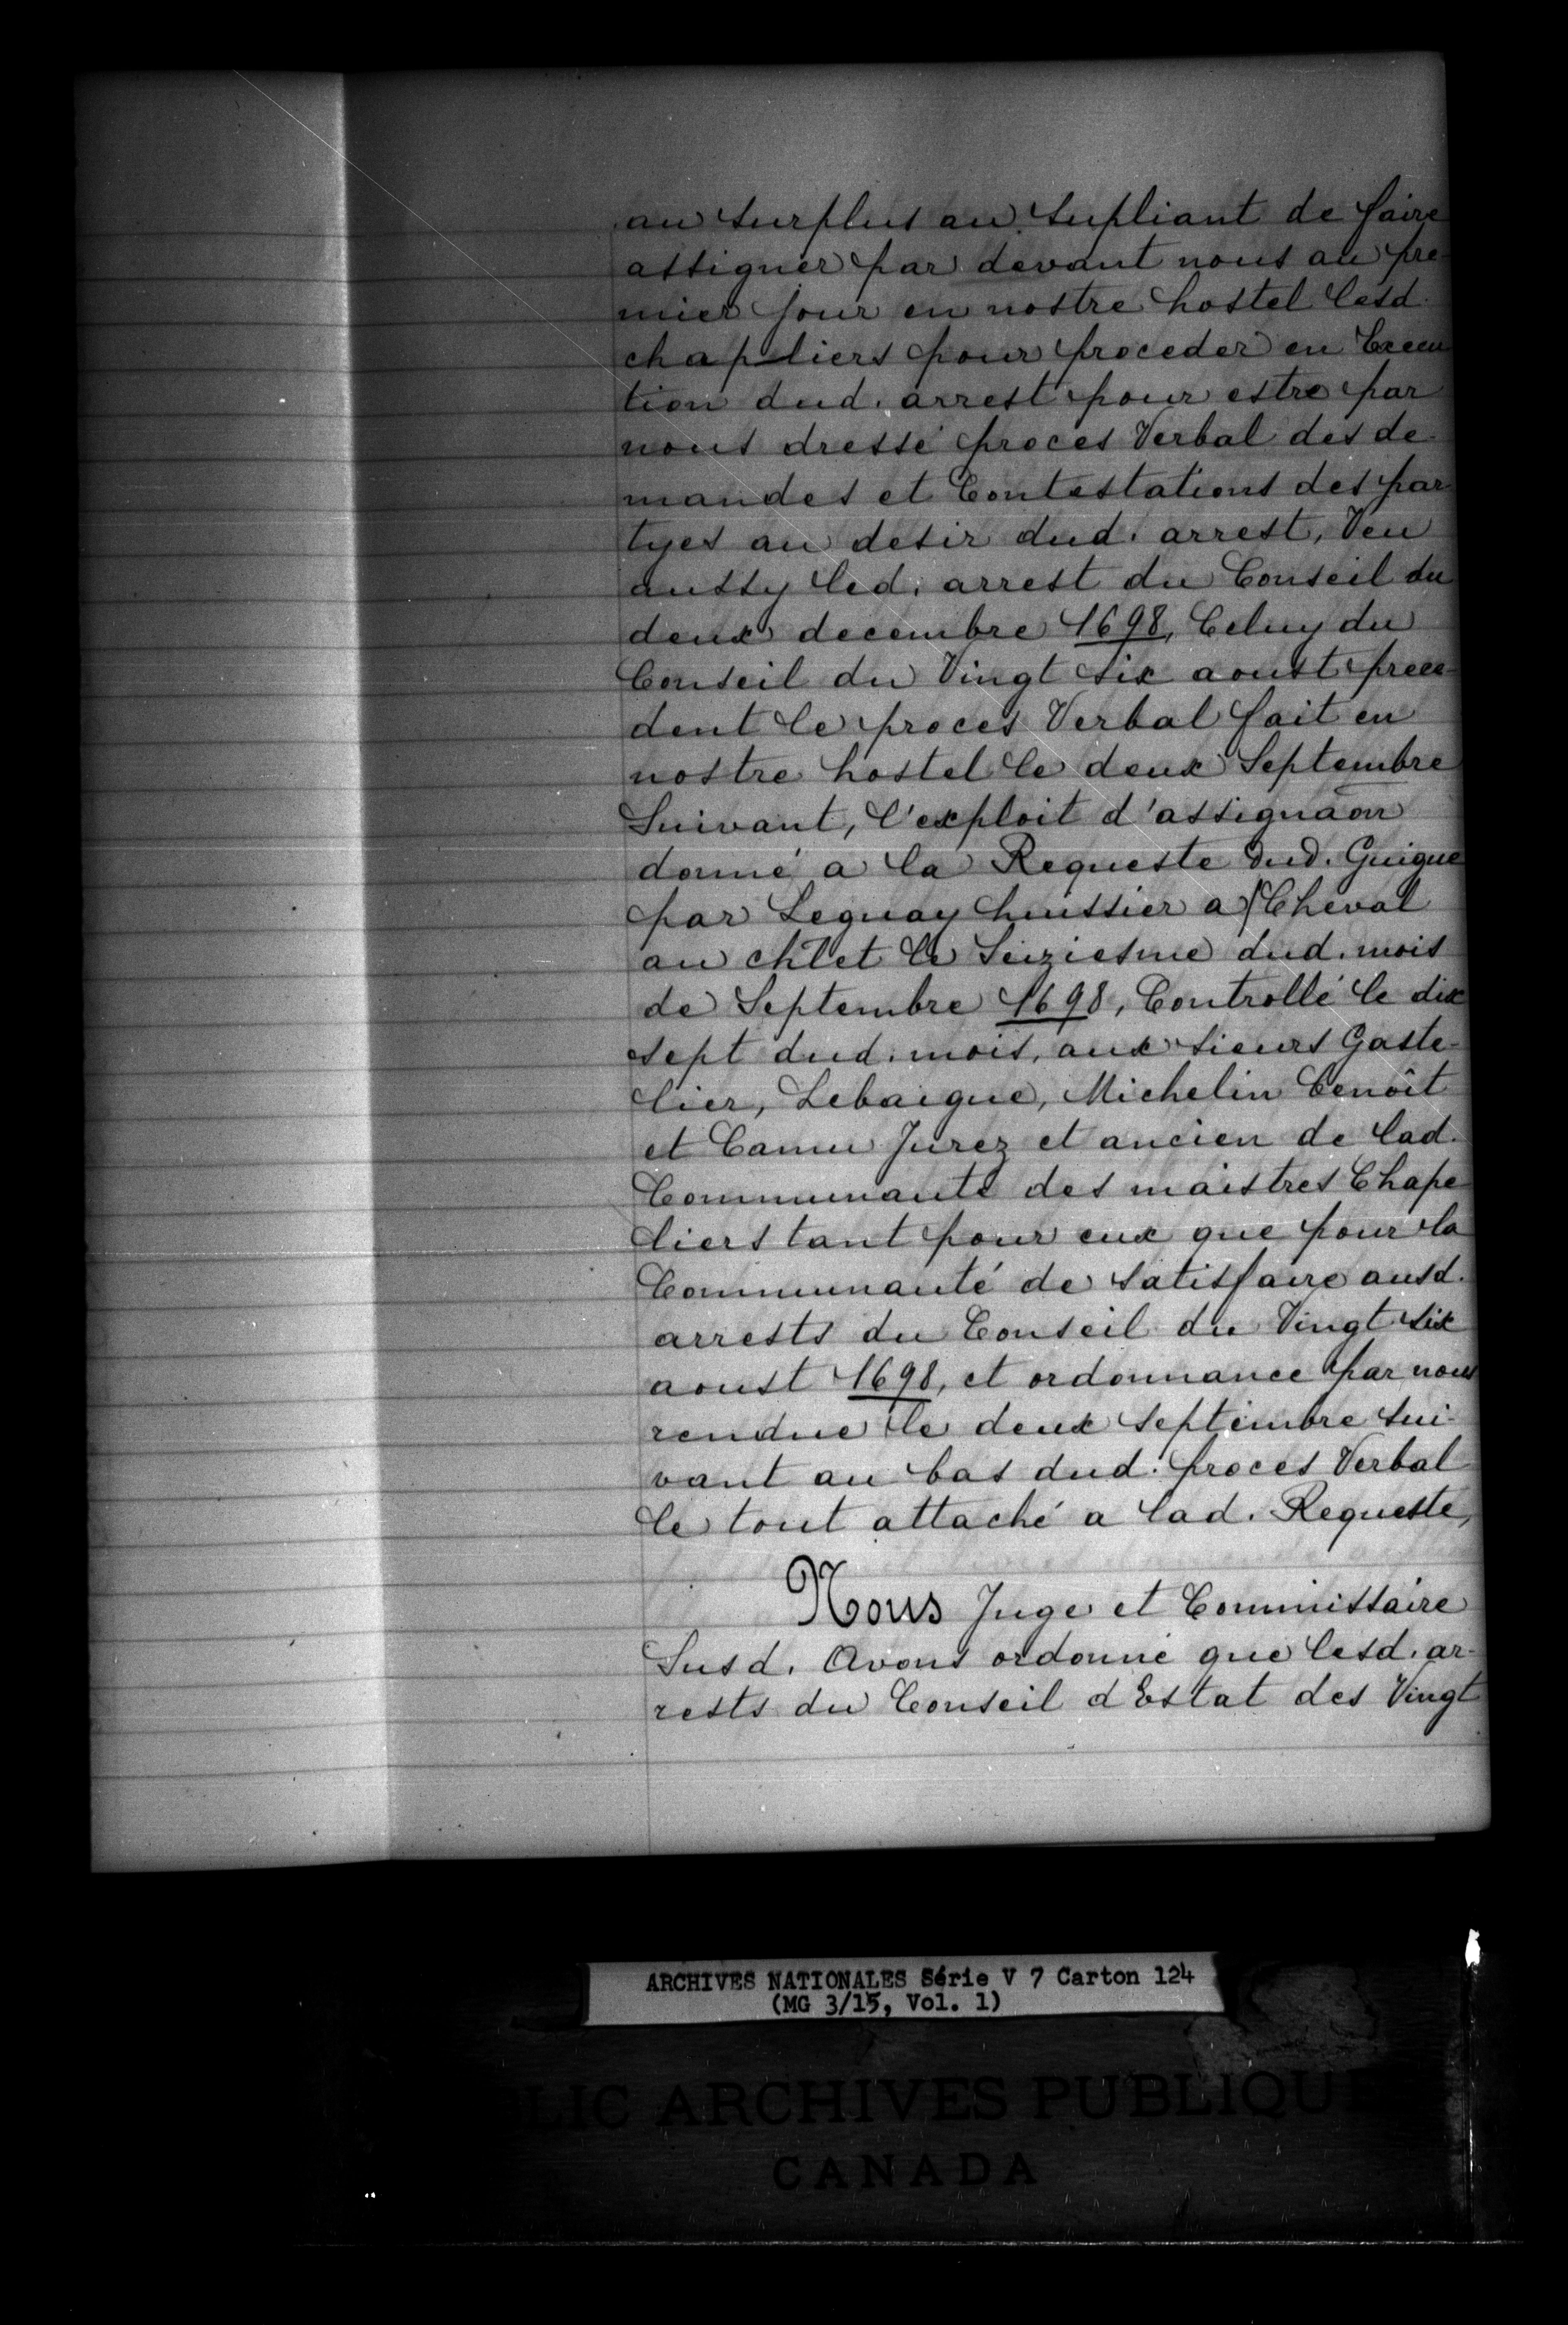 au surplus au supliant de faire
assigner par devant nous au pre-
mier jour en nostre hostel lesd.
chapliers pour proceder en Execu
tion dud. arrest pour estre par
nous dressé proces Verbal des de-
mandes et Contestations des par-
tyes au desir dud. arrest, Veu
aussy led. arrest du Conseil du
deux decembre 1698, Celuy du
Conseil du Vingt six aoust prece-
dent le proces Verbal fait en
nostre hostel le deux Septembre
Suivant, l'exploit d'assignaōn
donné a la Requeste dud. Guigue
par Leguay huissier a Cheval
au chlet le Seiziesme dud. mois
de Septembre 1698, Controllé le dix
sept dud. mois, aux sieurs Gaste-
lier, Lebaigue, Michelin benoît
et Camu Jurez et ancien de lad.
Communauté des maistres Chape
liers tant pour eux que pour la
Communauté de satisfaire ausd.
arrests du Conseil du Vingt six
aoust 1698, et ordonnance par nous
rendue le deux septembre sui-
vant au bas dud. proces Verbal
le tout attaché a lad. Requeste,
Nous Juge et Commissaire
Susd. Avons ordonné que lesd. ar-
rests du Conseil d'Estat des Vingt
ARCHIVES NATIONALES Série V 7 Carton 124
(MG 3/15, Vol. 1)
LIC ARCHIVES PUBLIQUE
CANADA